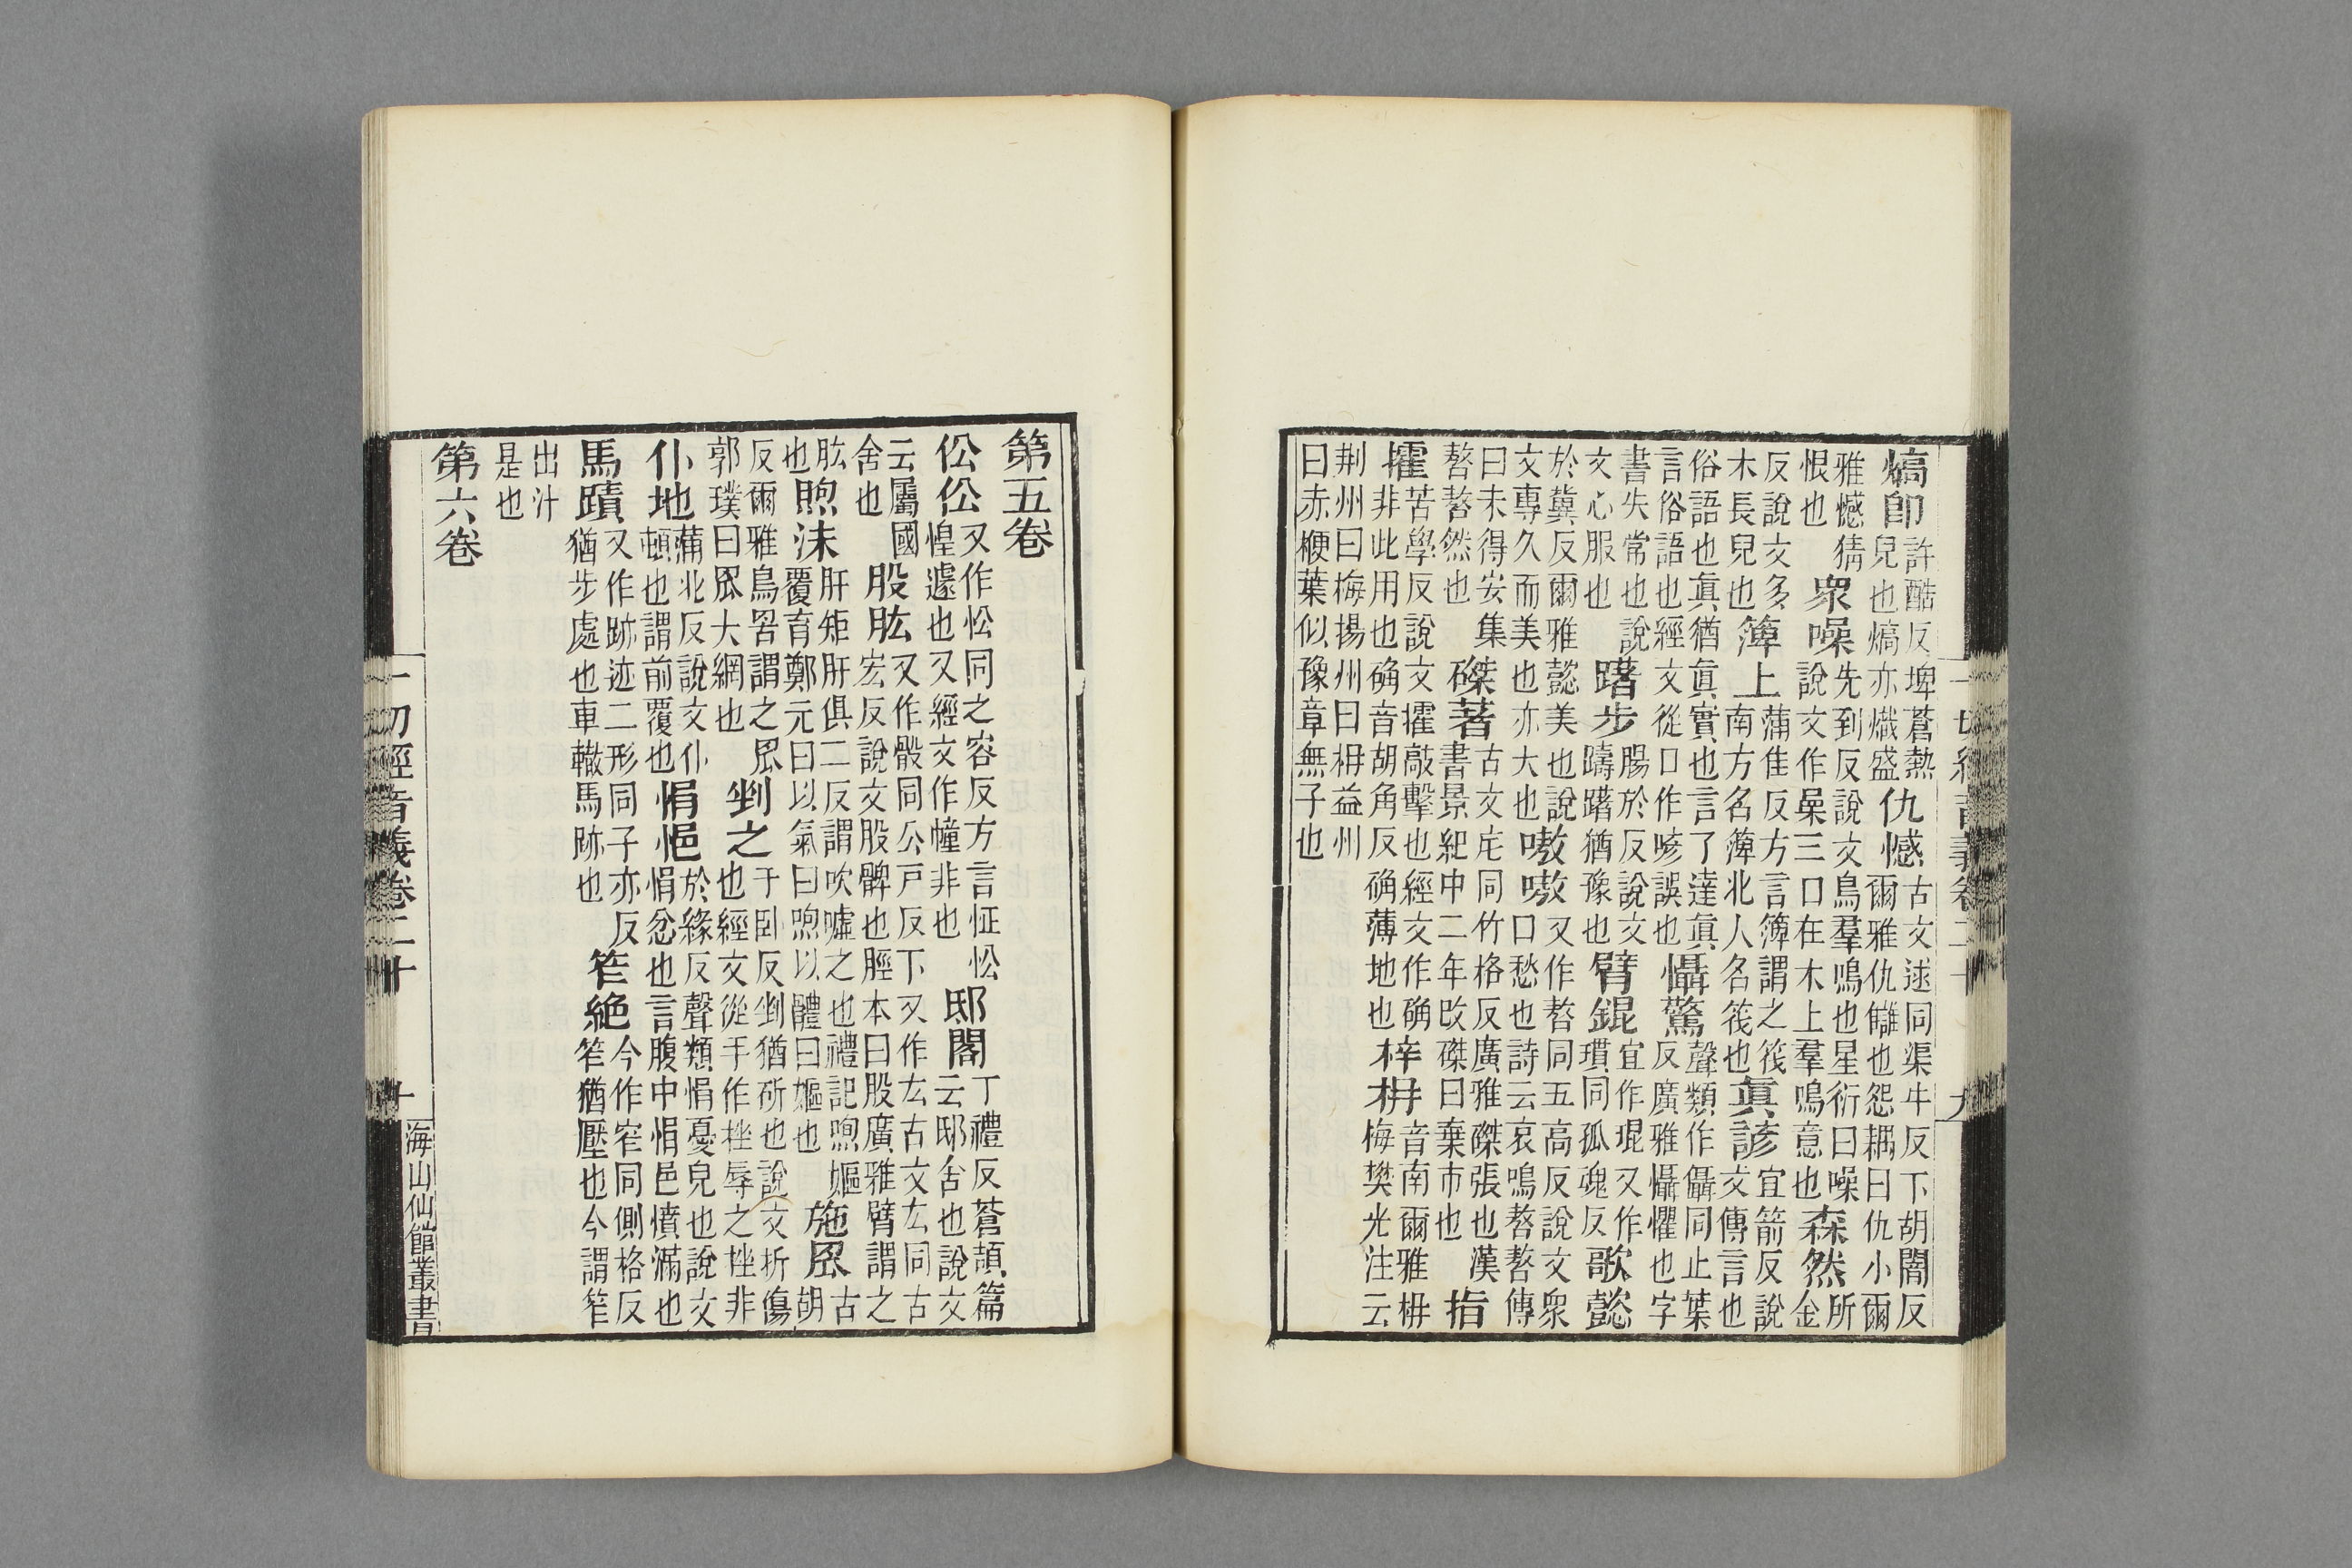 熇卽許酷反埤蒼熱皃也熇亦熾盛仇憾古文逑同渠牛反下胡闇反爾雅仇讎也怨耦曰仇小爾
雅憾猜恨也衆噪先到反說文鳥羣鳴也星衍曰噪說文作喿三口在木上羣鳴意也森然所金
反說文多木長皃也簰上蒲佳反方言簰謂之筏南方名簰北人名筏也眞諺宜箭反說文傳言也
俗語也眞猶眞實也言了達眞言俗語也經文從口作喭誤也懾驚聲類作儑同止葉反廣雅懾懼也字
書失常也說文心服也躇步腸於反說文躊躇猶豫也臂錕宜作琨又作瑻同孤魂反歌懿
於冀反爾雅懿美也說文專久而美也亦大也嗷嗷又作嗸同五高反說文衆口愁也詩云哀鳴嗸嗸傳
曰未得安集嗸嗸然也磔著古文厇同竹格反廣雅磔張也漢書景紀中二年改磔曰棄市也指
搉苦學反說文搉敲擊也經文作确非此用也确音胡角反确薄地也梓柟音南爾雅柟梅樊光注云
荆州曰梅揚州曰柟益州曰赤楩葉似豫章無子也
一切經音義卷二十
九
第五卷
伀伀又作忪同之容反方言怔忪惶遽也又經文作幢非也邸閣丁禮反蒼頡篇云邸舍也說文
云屬國舍也股肱又作骰同公戶反下又作厷古文厷同古宏反說文股髀也脛本曰股廣雅臂謂之
肱也煦沫肝矩肝俱二反謂吹噓之也禮記煦嫗覆育鄭元曰以氣曰煦以體曰嫗也施罛古胡
反爾雅鳥罟謂之罛郭璞曰罛大網也剉之千臥反剉猶斫也說文折傷也經文從手作挫辱之挫非
仆地蒲北反說文仆頓也謂前覆也悁悒於緣反聲類悁憂皃也說文悁忿也言腹中悁邑憤滿也
馬蹟又作跡迹二形同子亦反猶步處也車轍馬跡也笮絶今作窄同側格反笮猶壓也今謂笮
出汁是也
第六卷
一切經音義卷二十
十
海山仙館叢書